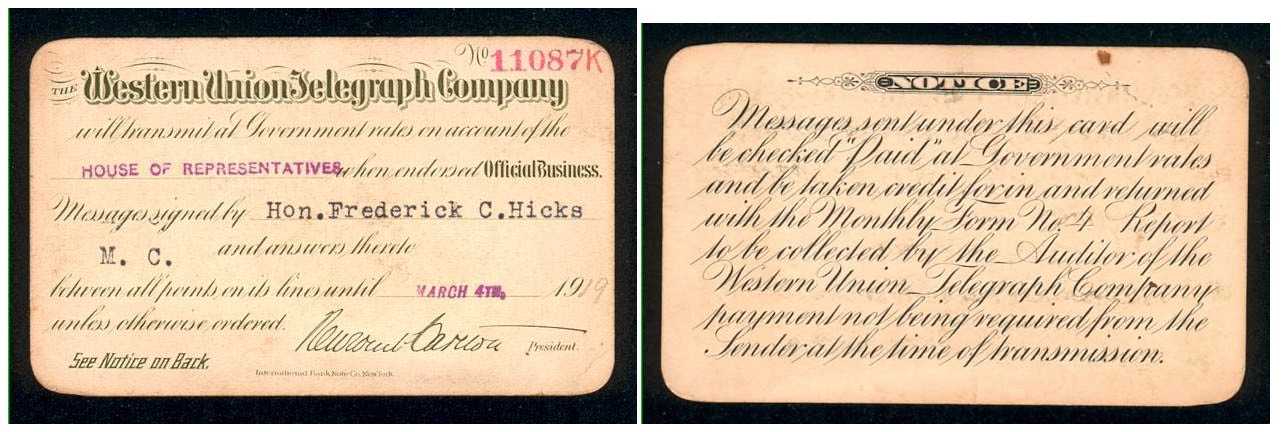 No 11087K
THE Western Union Telegraph Company
will transmit at Government rates on account of the
HOUSE OF REPRESENTATIVES, when endorsed Official Business.
Messages signed by Hon. Frederick C. Hicks
M. C. and answers thereto
between all points on its lines until MARCH 4TH, 1919
unless otherwise ordered.
Newcomb Carlton President.
See Notice on Back.
International Bank Note Co. New York.
NOTICE
Messages sent under this card will
be checked "Paid" at Government rates
and be taken credit for in and returned
with the Monthly Form No. 4 Report
to be collected by the Auditor of the
Western Union Telegraph Company
payment not being required from the
Sender at the time of transmission.